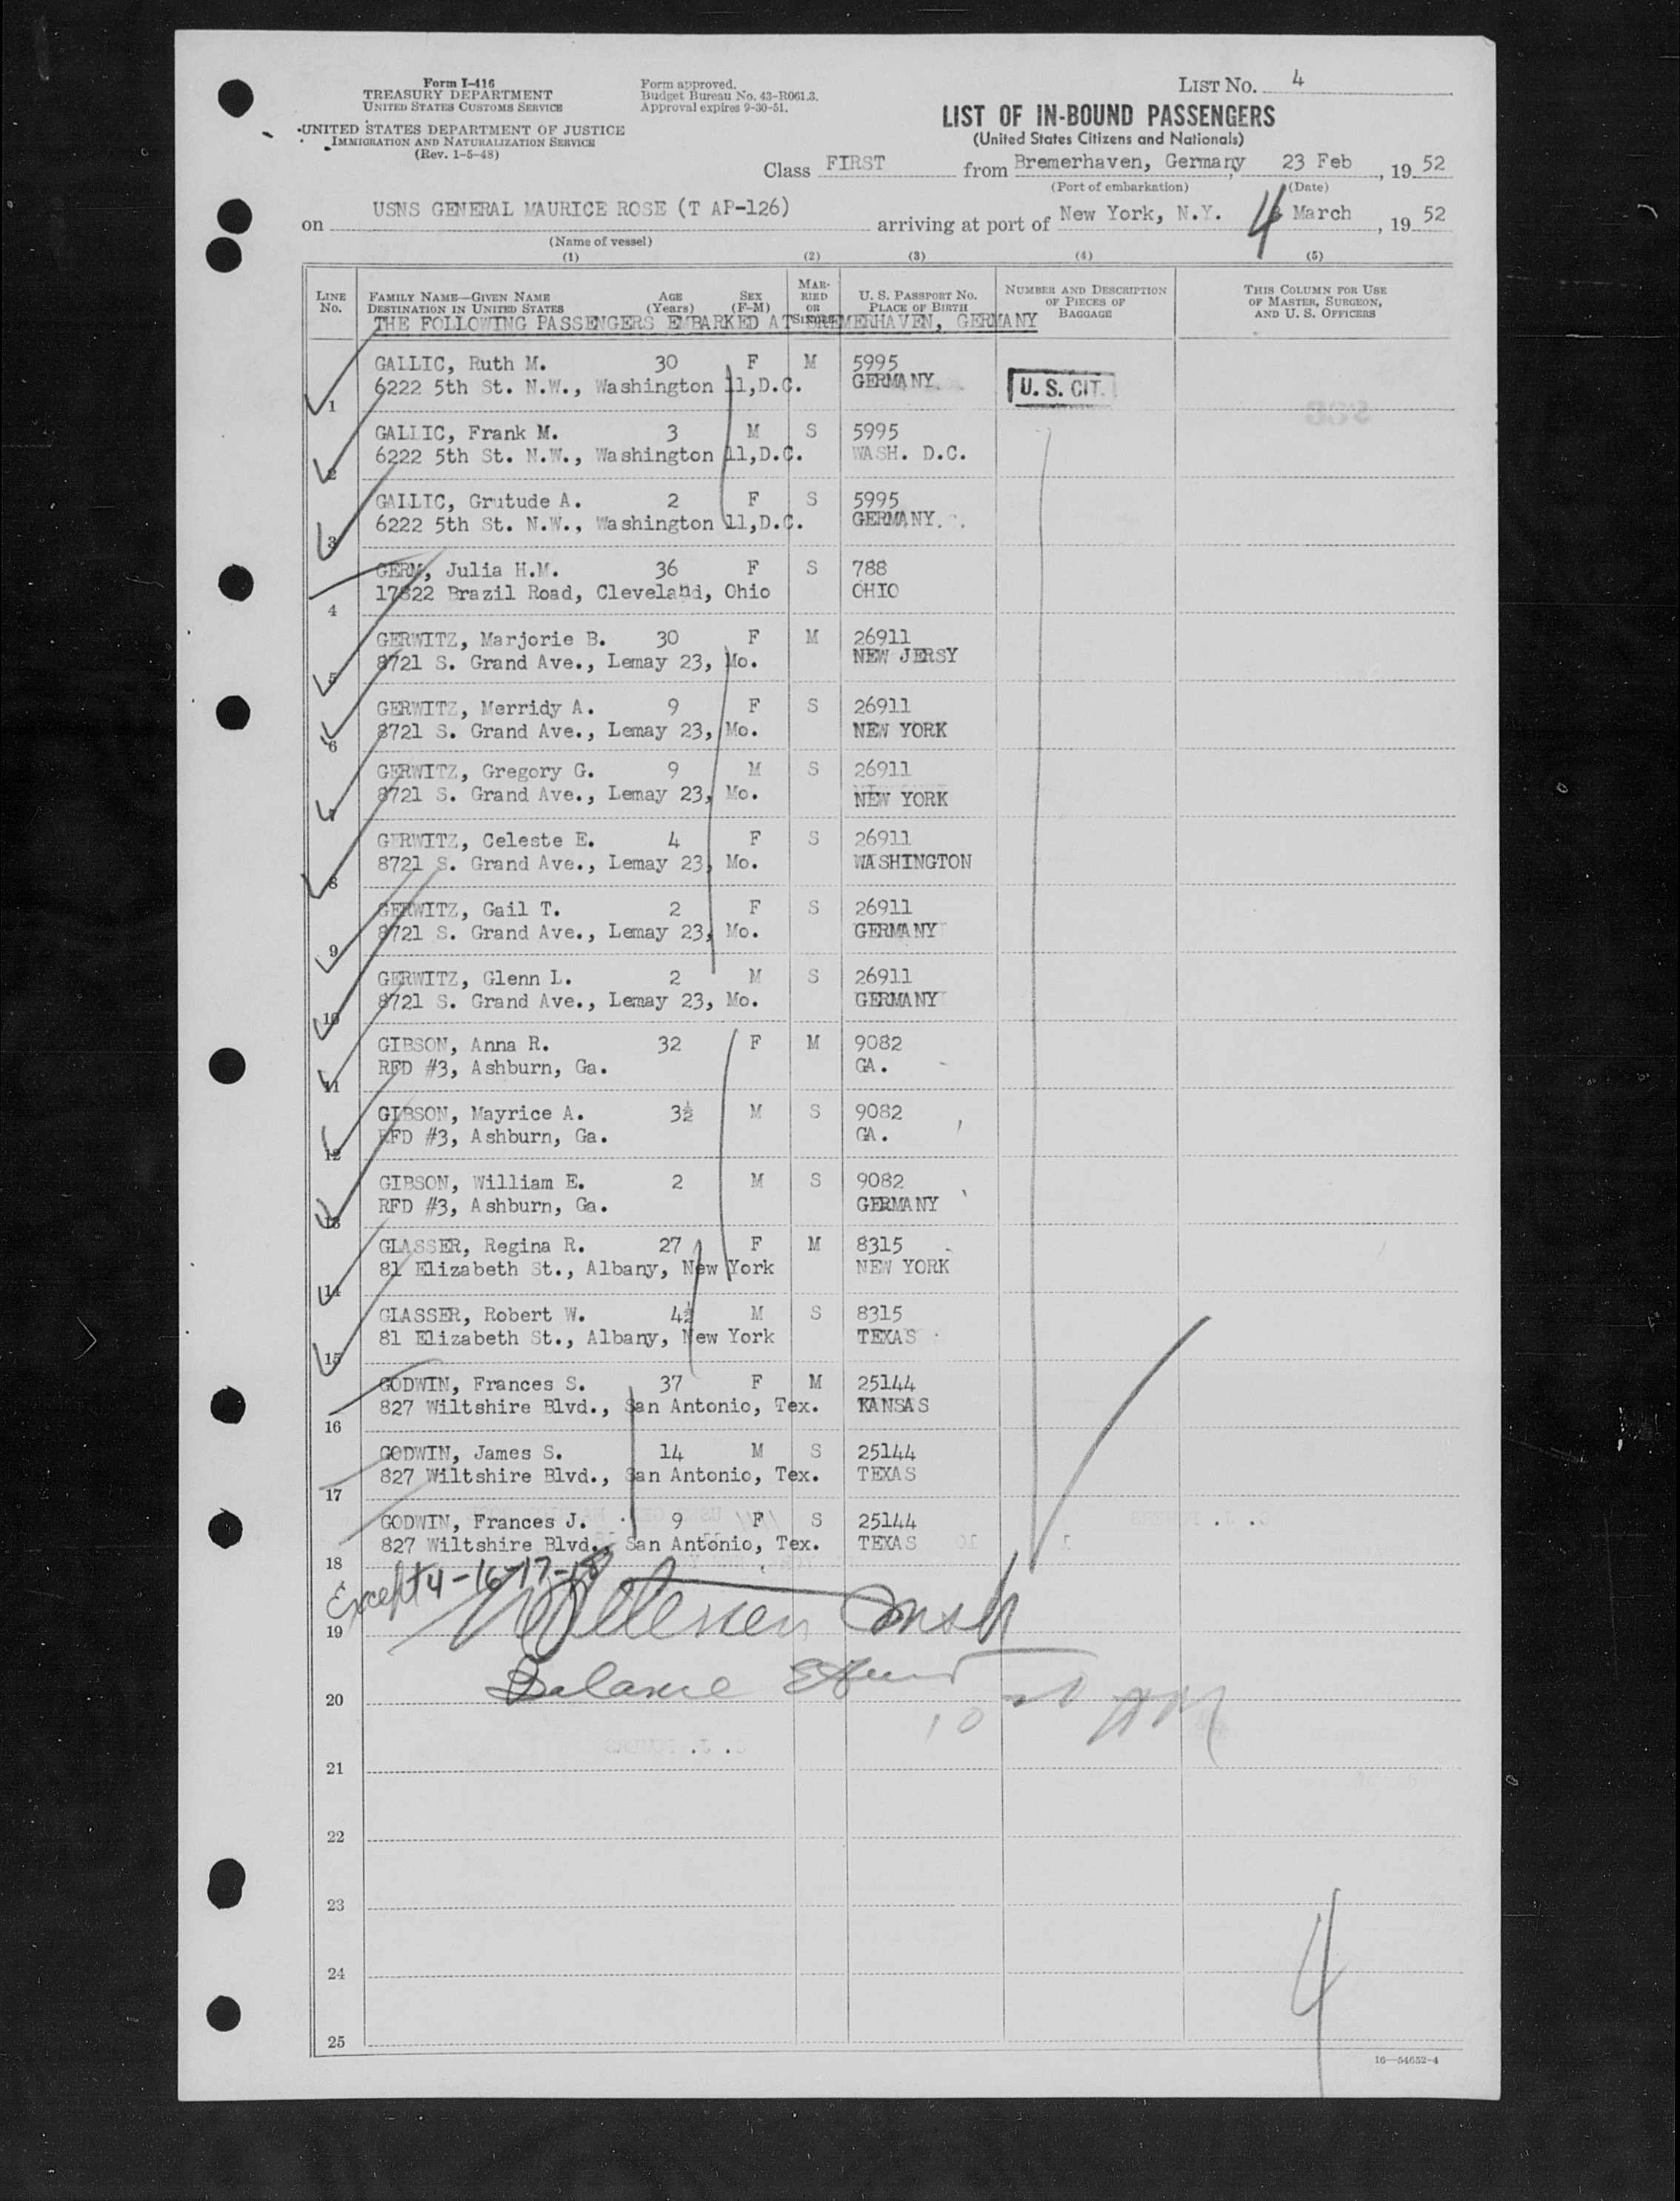 Form I-416
TREASURY DEPARTMENT
UNITED STATES CUSTOMS SERVICE
UNITED STATES DEPARTMENT OF JUSTICE
IMMIGRATION AND NATURALIZATION SERVICE
(Rev. 1-5-48)
Form approved.
Budget Bureau No. 43-R061.3.
Approval expires 9-30-51.
LIST NO. 4
LIST OF IN-BOUND PASSENGERS
(United States Citizens and Nationals)
Class FIRST from Bremerhaven, Germany, 23 Feb, 1952
(Port of embarkation) (Date)
on USNS GENERAL MAURICE ROSE (T AP-126) arriving at port of New York, N.Y. 4 March, 1952
(Name of vessel)
(1) (2) (3) (4) (5)
LINE NO. FAMILY NAME—GIVEN NAME DESTINATION IN UNITED STATES AGE (Years) SEX (F-M) MARRIED OR SINGLE U. S. PASSPORT NO. PLACE OF BIRTH NUMBER AND DESCRIPTION OF PIECES OF BAGGAGE THIS COLUMN FOR USE OF MASTER, SURGEON, AND U. S. OFFICERS
THE FOLLOWING PASSENGERS EMBARKED AT BREMERHAVEN, GERMANY
GALLIC, Ruth M. 30 F M 5995
1 6222 5th St. N.W., Washington 11,D.C. GERMANY U. S. CIT.
GALLIC, Frank M. 3 M S 5995
2 6222 5th St. N.W., Washington 11,D.C. WASH. D.C.
GALLIC, Grutude A. 2 F S 5995
3 6222 5th St. N.W., Washington 11,D.C. GERMANY
GERM, Julia H.M. 36 F S 788
4 17822 Brazil Road, Cleveland, Ohio OHIO
GERWITZ, Marjorie B. 30 F M 26911
5 8721 S. Grand Ave., Lemay 23, Mo. NEW JERSY
GERWITZ, Merridy A. 9 F S 26911
6 8721 S. Grand Ave., Lemay 23, Mo. NEW YORK
GERWITZ, Gregory G. 9 M S 26911
7 8721 S. Grand Ave., Lemay 23, Mo. NEW YORK
GERWITZ, Celeste E. 4 F S 26911
8 8721 S. Grand Ave., Lemay 23, Mo. WASHINGTON
GERWITZ, Gail T. 2 F S 26911
9 8721 S. Grand Ave., Lemay 23, Mo. GERMANY
GERWITZ, Glenn L. 2 M S 26911
10 8721 S. Grand Ave., Lemay 23, Mo. GERMANY
GIBSON, Anna R. 32 F M 9082
11 RFD #3, Ashburn, Ga. GA.
GIBSON, Mayrice A. 3½ M S 9082
12 RFD #3, Ashburn, Ga. GA.
GIBSON, William E. 2 M S 9082
13 RFD #3, Ashburn, Ga. GERMANY
GLASSER, Regina R. 27 F M 8315
14 81 Elizabeth St., Albany, New York NEW YORK
GLASSER, Robert W. 4½ M S 8315
15 81 Elizabeth St., Albany, New York TEXAS
GODWIN, Frances S. 37 F M 25144
16 827 Wiltshire Blvd., San Antonio, Tex. KANSAS
GODWIN, James S. 14 M S 25144
17 827 Wiltshire Blvd., San Antonio, Tex. TEXAS
GODWIN, Frances J. 9 F S 25144
18 827 Wiltshire Blvd., San Antonio, Tex. TEXAS
Except 4-16-17-18
19
Balance
20
21
22
23
24
25
4
16—54652-4